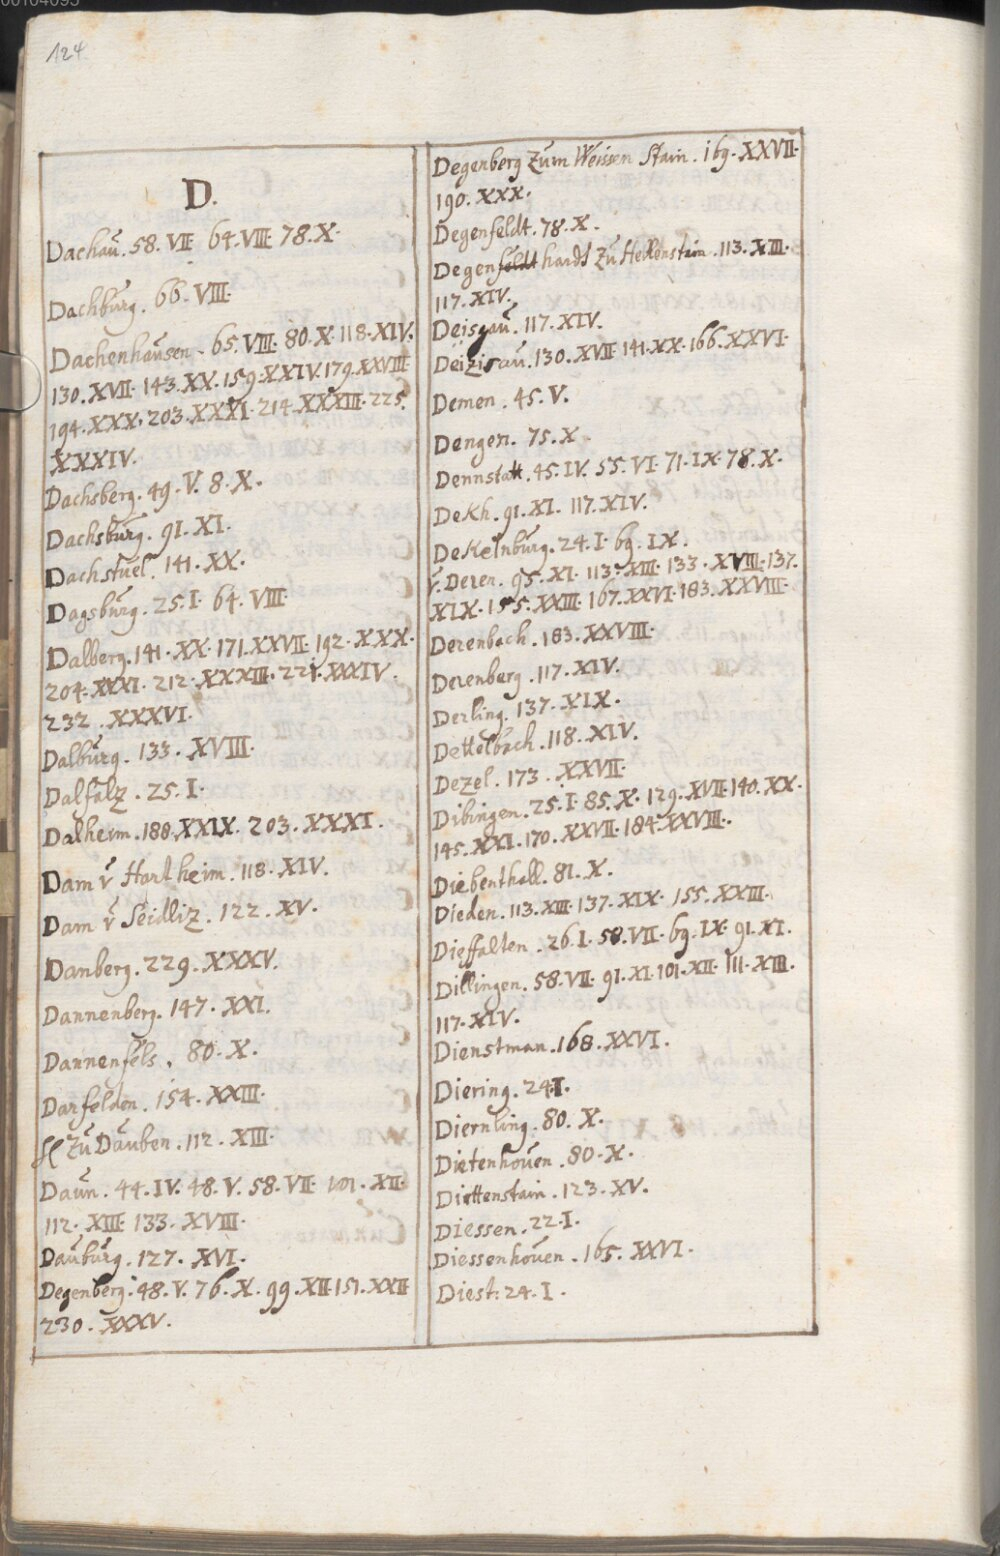 124.
D.
Dachaŭ. 58. VII. 64. VIII. 78. X.
Dachbŭrg. 66. VIII.
Dachenhaŭsen. 65. VIII. 80. X. 118. XIV.
130. XVII. 143. XX. 159. XXIV. 179. XXVIII.
194. XXX. 203. XXXI. 214. XXXIII. 225.
XXXIV.
Dachsberg. 49. V. 8. X.
Dachsbŭrg. 91. XI.
Dachstŭel. 141. XX.
Dagsbŭrg. 25. I. 64. VIII.
Dalberg. 141. XX. 171. XXVII. 192. XXX.
204. XXXI. 212. XXXIII. 224. XXXIV.
232. XXXVI.
Dalbŭrg. 133. XVIII.
Dalfalz. 25. I.
Dalheim. 188. XXIX. 203. XXXI.
Dam v̆ Hartheim. 118. XIV.
Dam v̆ Seidliz. 122. XV.
Danberg. 229. XXXV.
Dannenberg. 147. XXI.
Dannenfels. 80. X.
Darfelden. 154. XXIII.
zŭ Daŭben. 112. XIII.
Daŭn. 44. IV. 48. V. 58. VII. 101. XII.
112. XIII. 133. XVIII.
Daŭbŭrg. 127. XVI.
Degenberg. 48. V. 76. X. 99. XII. 151. XXII
230. XXXV.
Degenberg zŭm Weissen Stain. 169. XXVII.
190. XXX.
Degenfeldt. 78. X.
Degenfeldt hardt zŭ Hellenstain. 113. XIII.
117. XIV.
Deisgaŭ. 117. XIV.
Deizisaŭ. 130. XVII. 141. XX. 166. XXVI.
Demen. 45. V.
Dengen. 75. X.
Dennstatt. 45. IV. 55. VI. 71. IX. 78. X.
DeKh. 91. XI. 117. XIV.
DeKelnbŭrg. 24. I. 69. IX.
v̆. Deren. 95. XI. 113. XIII. 133. XVIII. 137.
XIX. 155. XXIII. 167. XXVI. 183. XXVIII.
Derenbach. 183. XXVIII.
Derenberg. 117. XIV.
Derling. 137. XIX.
Dettelbach. 118. XIV.
Dezel. 173. XXVII.
Dibingen. 25. I. 85. X. 129. XVII. 140. XX.
145. XXI. 170. XXVII. 184. XXVIII.
Diebenthall. 81. X.
Dieden. 113. XIII. 137. XIX. 155. XXIII.
Dieffalten. 26. I. 58. VII. 69. IX. 91. XI.
Dillingen. 58. VII. 91. XI. 101. XII. 111. XIII.
117. XIV.
Dienstman. 168. XXVI.
Diering. 24. I.
Diernling. 80. X.
Dietenhoŭen. 80. X.
Diettenstain. 123. XV.
Diessen. 22. I.
Diessenhoŭen. 165. XXVI.
Diest: 24. I.